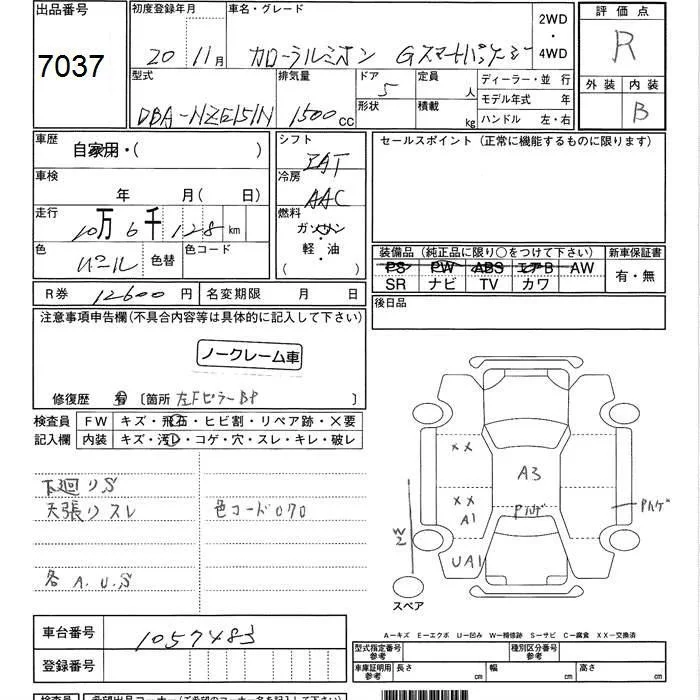 出品番号
7037
初度登録年月
20 11月
車名・グレード
カローラルミオン Gスマートパッケージ
2WD
・
4WD
評価点
R
外装 内装
B
型式
DBA-NZE151N
排気量
1500cc
ドア
5
形状
定員
人
積載
kg
ディーラー・並行
モデル年式 年
ハンドル 左・右
車歴
自家用・( )
車検
年 月(日)
走行
10万6千128km
色
パール
色替
色コード
シフト
IAT
冷房
AAC
燃料
ガソリン
軽・油
( )
セールスポイント(正常に機能するものに限ります)
装備品(純正品に限り○をつけて下さい)
PS PW ABS エアB AW
SR ナビ TV カワ
新車保証書
有・無
後日品
R券 12600円
名変期限 月 日
注意事項申告欄(不具合内容等は具体的に記入して下さい)
ノークレーム車
修復歴 有 〔箇所 左FピラーBP 〕
検査員
記入欄
FW キズ・飛石・ヒビ割・リペア跡・×要
内装 キズ・汚レ・コゲ・穴・スレ・キレ・破レ
下廻りS
天張りスレ
色コード070
各A.U.S
XX
XX
A1
UA1
A3
Pハゲ
Pハゲ
W2
スペア
A─キズ E─エクボ U─凹み W─補修跡 S─サビ C─腐食 XX─交換済
車台番号
1057483
登録番号
型式指定番号
参考
種別区分番号
参考
車庫証明用
参考
長さ cm
幅 cm
高さ cm
検査員
希望出品コーナー(ご希望のコーナー名を記入下さい)